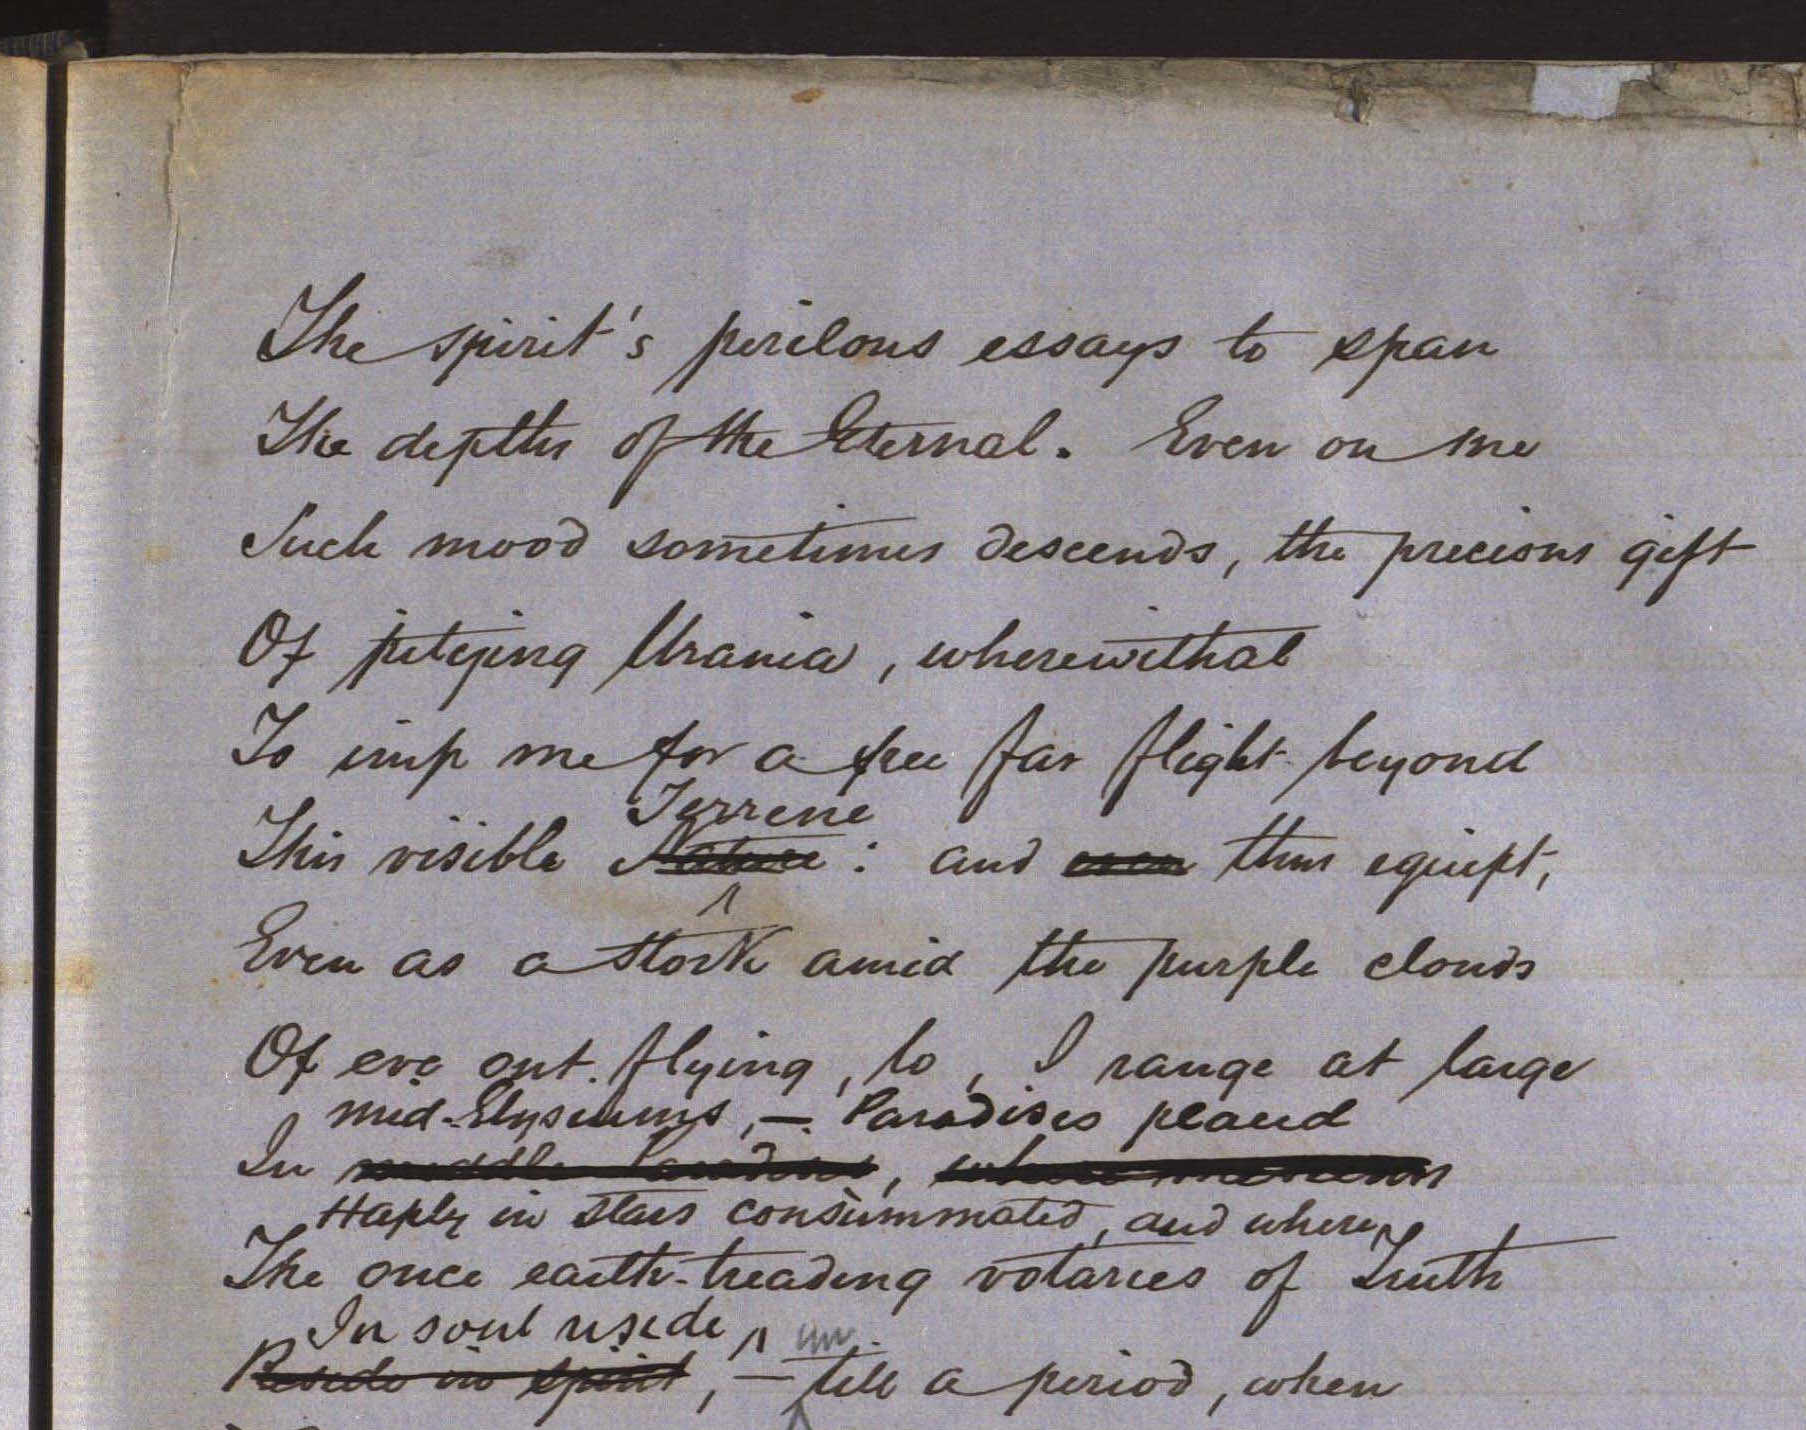 The spirit's perilous essays to span
The depths of the Eternal. Even on me
Such mood sometimes descends, the precious gift
Of pitying Urania, wherewithal
To imp me for a free far flight beyond
Terrene
This visible Nature : and even thus equipt,
Even as a stork amid the purple clouds
Of eve out-flying, lo, I range at large
mid-Elysiums, — Paradises placid
In middle Paradise, where
Haply in stars consummated, and where,
The once earth-treading votaries of Truth
In soul reside
Reside in spirit, — till a period, when